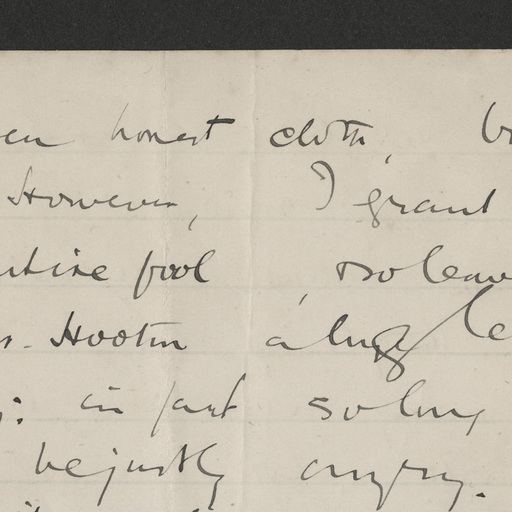 honest cloth,
However, I grant
fool, so leave
Hooton a long le
: in fact so long
be justly angry.